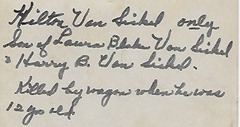 Hilton Van Sickel only
Son of Laura Blake Van Sickel
& Harry B. Van Sickel.
Killed by wagon when he was
12 yrs old.